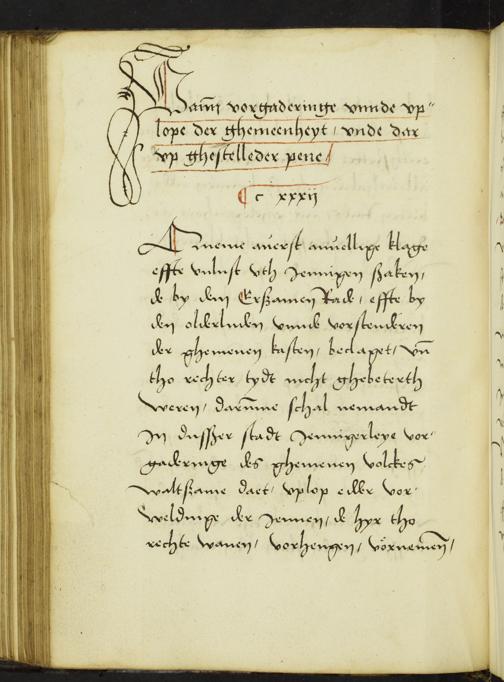 Vann vorgaderinge vnnde vp=
lope der ghemeenheyt / vnde dar
vp ghestelleder pene /
c xxxii
effte vnlust vth Jennigen szaken /
de by dem Erszamen Rade / effte by
den olderluden vnnde vorstenderen
der ghemenen kasten / beclaget / vn̄
tho rechter tydt nicht ghebeterth
weren / darumme schal nemandt
In dussser stadt Jennigerleye vor=
gaderinge des ghemenen volckes
waltszame daet / vplop edder vor=
weldinge der Jennen / de hyr tho
rechte wanen / vorhengen / vörnemen /